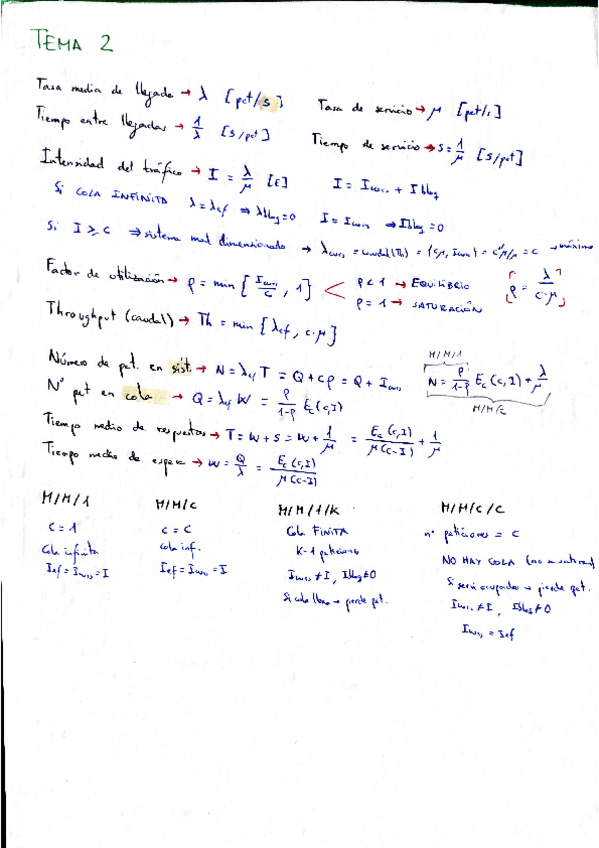 TEMA 2
Tasa media de llegada → λ [pet/s]
Tasa de servicio → μ [pet/s]
Tiempo entre llegadas → 1/λ [s/pet]
Tiempo de servicio → s = 1/μ [s/pet]
Intensidad del tráfico → I = λ/μ [E]
I = Icurs + Ibloq
Si COLA INFINITA λ = λef ⇒ λbloq = 0 I = Icurs ⇒ Ibloq = 0
Si I ≥ c ⇒ sistema mal dimensionado → λcurs = caudal(Th) = (cμ, Icurs) = cμ/μ = c → máximo
Factor de utilización → ρ = min [Icurs/c, 1] ρ < 1 → EQUILIBRIO
ρ = 1 → SATURACIÓN
[ρ = λ/c·μ]
Throughput (caudal) → Th = min [λef, c·μ]
Número de pet. en sist. → N = λef T = Q + cρ = Q + Icurs
M/M/1
N = ρ/1-ρ Ec(c,I) + λ/μ
M/M/c
Nº pet en cola → Q = λef W = ρ/1-ρ Ec(c,I)
Tiempo medio de respuesta → T = W + s = W + 1/μ = Ec(c,I)/μ(c-I) + 1/μ
Tiempo medio de espera → W = Q/λ = Ec(c,I)/μ(c-I)
M/M/1
c = 1
Cola infinita
Ief = Icurs = I
M/M/c
c = c
cola inf.
Ief = Icurs = I
M/M/1/k
Cola FINITA
K-1 peticiones
Icurs ≠ I, Ibloq ≠ 0
Si cola llena → pierde pet.
M/M/c/c
nº peticiones = c
NO HAY COLA (no
Si serv. ocupados → pierde pet.
Icurs ≠ I, Ibloq ≠ 0
Icurs = Ief